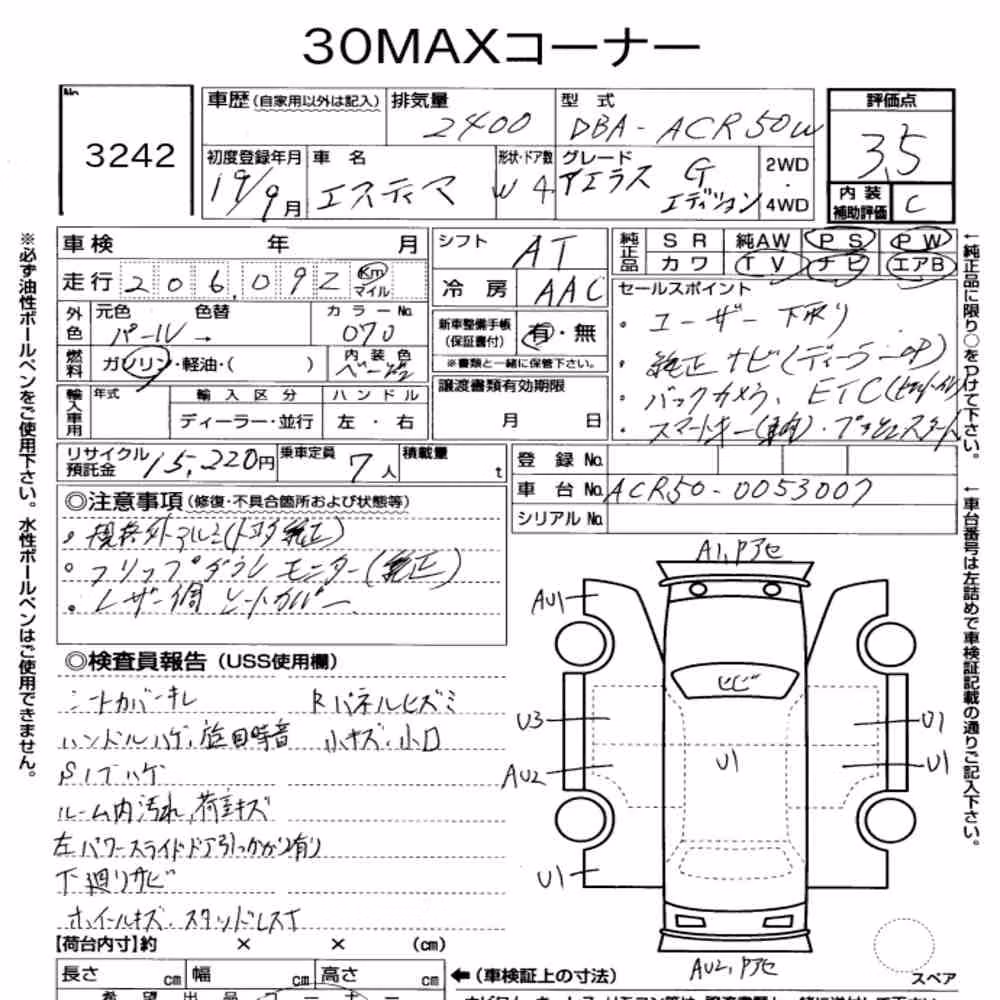 30MAXコーナー
No. 3242
車歴(自家用以外は記入) 排気量 2400 型式 DBA-ACR50W
評価点 3.5
初度登録年月 19/9月 車名 エスティマ 形状・ドア数 W 4 グレード アエラス G エディション 2WD・4WD
内装補助評価 C
車検 年 月
走行 206,092 Km マイル
外色 元色 パール → 色替 カラーNo. 070
燃料 ガソリン・軽油・( ) 内装色 ベージュ
輸入車用 年式 輸入区分 ディーラー・並行 ハンドル 左・右
シフト AT
冷房 AAC
新車整備手帳(保証書付) 有・無
※書類と一緒に保管下さい。
譲渡書類有効期限
月 日
純正品 SR 純AW PS PW
カワ TV ナビ エアB
セールスポイント
・ユーザー下取り
・純正ナビ(ディーラーOP)
・バックカメラ、ETC
・スマートキー ・プッシュスタート
リサイクル預託金 15,220円 乗車定員 7人 積載量 t
登録No.
車台No. ACR50-0053007
シリアルNo.
◎注意事項(修復・不具合箇所および状態等)
・規格外アルミ(トヨタ純正)
・フリップダウンモニター(純正)
・レザー調シートカバー
◎検査員報告(USS使用欄)
シートカバーキレ Rパネルヒズミ
ハンドルハゲ、旋回時音 小キズ、小凹
Sノブハゲ
ルーム内汚れ、荷室キズ
左パワースライドドア引っかかり有り
下廻りサビ
ホイールキズ、スタッドレスT
【荷台内寸】約 × × (cm)
長さ cm 幅 cm 高さ cm
←(車検証上の寸法)
希望出品コーナー
A1,Pアセ
AU1
ヒビ
U3
U1
AU2
U1
U1
U1
AU2,Pアセ
スペア
※必ず油性ボールペンをご使用下さい。水性ボールペンはご使用できません。
←純正品に限り○をつけて下さい。
←車台番号は左詰めで車検証記載の通りご記入下さい。